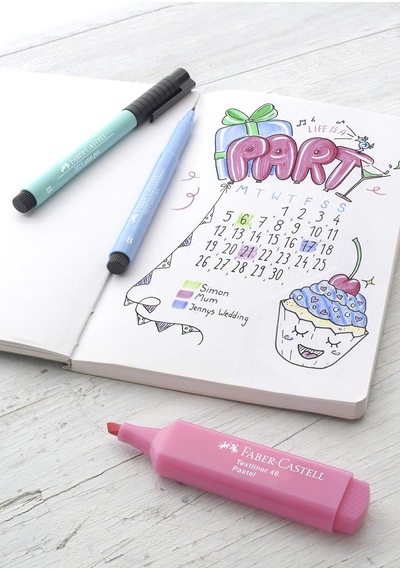 FABER-CASTELL
PITT artist pen
B
FABER-CASTELL
PITT artist pen
B
LIFE IS A
PARTY
M T W T F S S
1 2 3 4
5 6 7 8 9 10 11
12 13 14 15 16 17 18
19 20 21 22 23 24 25
26 27 28 29 30
Simon
Mum
Jennys Wedding
FABER-CASTELL
Textliner 46
Pastel